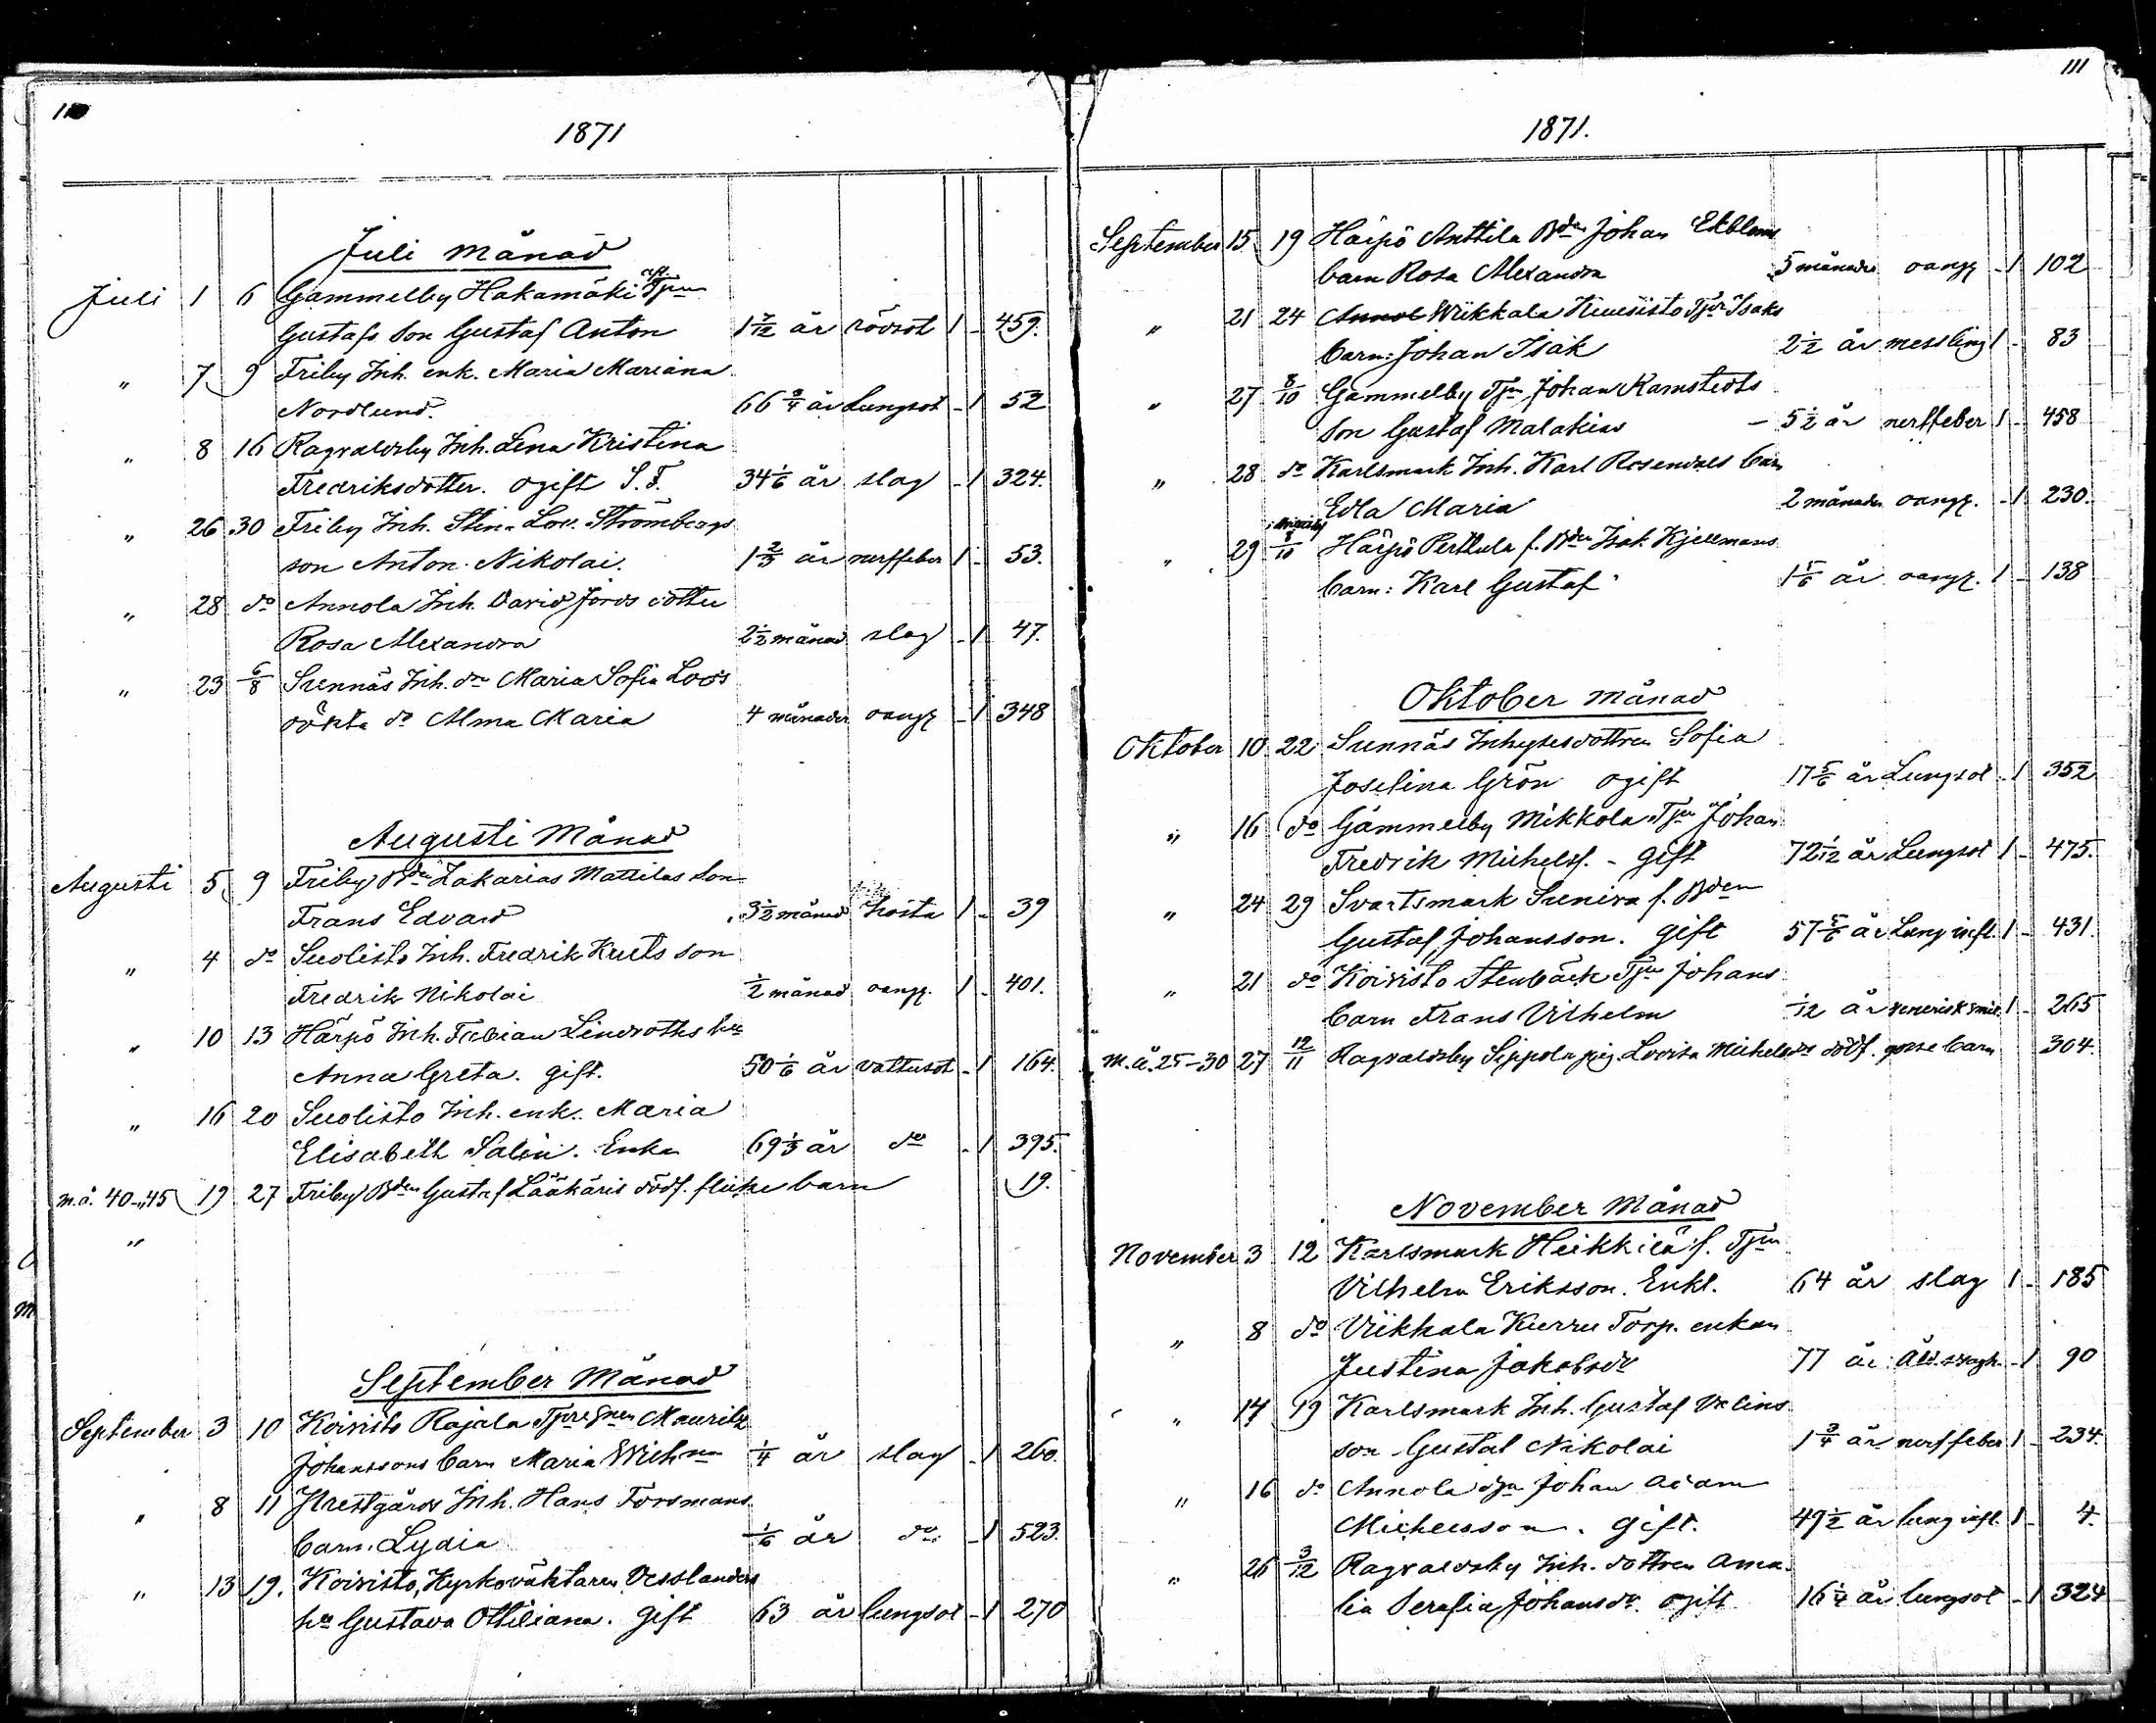 110
1871
Juli Månad
Juli 1 6 Gammelby Hakamäki Tjrn
Gustafs Son Gustaf Anton 1 7/12 år rödsot 1 - 459.
" 7 9 Friby Inh. enk. Maria Mariana
Nordlund. 66 3/4 år Lungsot - 1 52
" 8 16 Ragvaldsby Inh. Lena Kristina
Fredriksdotter. ogift S.F. 34 1/6 år slag - 1 324.
" 26 30 Friby Inh. Stina Lov. Strömbergs
son Anton Nikolai. 1 2/3 år nerffeber 1 - 53.
" 28 do Annola Inh. David Jords dotter
Rosa Alexandra 2 1/2 månad slag - 1 47.
" 23 6/8 Sunnäs Inh. dr Maria Sofia Loos
oökta dr Alma Maria 4 månader oangf - 1 348
Augusti Månad
Augusti 5 9 Friby Bdn Zakarias Mattilas Son
Frans Edvard 3 1/2 månad hosta 1 - 39
" 4 do Suolisto Inh. Fredrik Kuits son
Fredrik Nikolai 1/2 månad oangf. 1 - 401.
" 10 13 Härpö Inh. Fabian Lindroths hu
Anna Greta. gift. 50 1/6 år vattusot - 1 164.
" 16 20 Suolisto Inh. enk. Maria
Elisabeth Salin. Enka 69 1/3 år do - 1 395.
m.å. 40-45 19 27 Friby Bdn Gustaf Lääkäris dödf. flicke barn 19.
"
September Månad
September 3 10 Koivisto Rajala Mauritz
Johanssons barn Maria Wilhna 1/4 år slag - 1 260.
" 8 11 Prestgårds Inh. Hans Forsmans
barn Lydia 1/6 år do - 1 523.
" 13 19. Koivisto, Kyrkoväktaren Vesslanders
hu Gustava Ottiliana. gift 63 år lungsot - 1 270
111
1871.
September 15 19 Härpö Anttila Bdn Johan Ekbloms
barn Rosa Alexandra 5 månader oangf - 1 102
" 21 24 Wiikkala Kuusisto Tjdr Isaks
barn: Johan Isak 2 1/2 år messling 1 - 83
" 27 8/10 Gammelby Tjrn Johan Ramstedts
Son Gustaf Malakias - 5 1/2 år nerffeber 1 - 458
" 28 do Karlsmark Inh. Karl Rosendals barn
Edla Maria 2 månader oangf. - 1 230.
" 29 8/10 Härpö Perttula f. Bdn Isak Kjellmans
barn: Karl Gustaf 1 5/6 år oangf. 1 - 138
Oktober månad
Oktober 10 22 Sunnäs Inhysesdottren Sofia
Josefina Grön ogift 17 5/6 år Lungsot - 1 352
" 16 do Gammelby Mikkola Tjrn Johan
Fredrik Michelsf. - gift 72 1/12 år Lungsot 1 - 475.
" 24 29 Svartsmark f. Bden
Gustaf Johansson. gift 57 5/6 år Lunginfl. 1 - 431.
" 21 do Koivisto Stenbäck Tjrn Johans
barn Frans Vilhelm 1/12 år venerisk smit. 1 - 265
m.å. 25-30 27 12/11 Ragvaldsby Seppola pig. Lovisa Michelsdr dödf. gosse barn 304.
November Månad
November 3 12 Karlsmark Heikkilä f. Tjrn
Vilhelm Eriksson. Enkl. 64 år slag 1 - 185
" 8 do Viikkala Kurru Torp. enkan
Justina Jakobsdr 77 år Åld.svagh. - 1 90
" 14 19 Karlsmark Inh. Gustaf Valins
son Gustaf Nikolai 1 3/4 år nerffeber 1 - 234.
" 16 do Annola Johan Adam
Michelsson. gift. 49 1/2 år lunginfl. 1 - 4.
" 26 3/12 Ragvaldsby Inh. dottren Ama-
lia Serafia Johansdr. ogift 16 1/4 år lungsot - 1 324